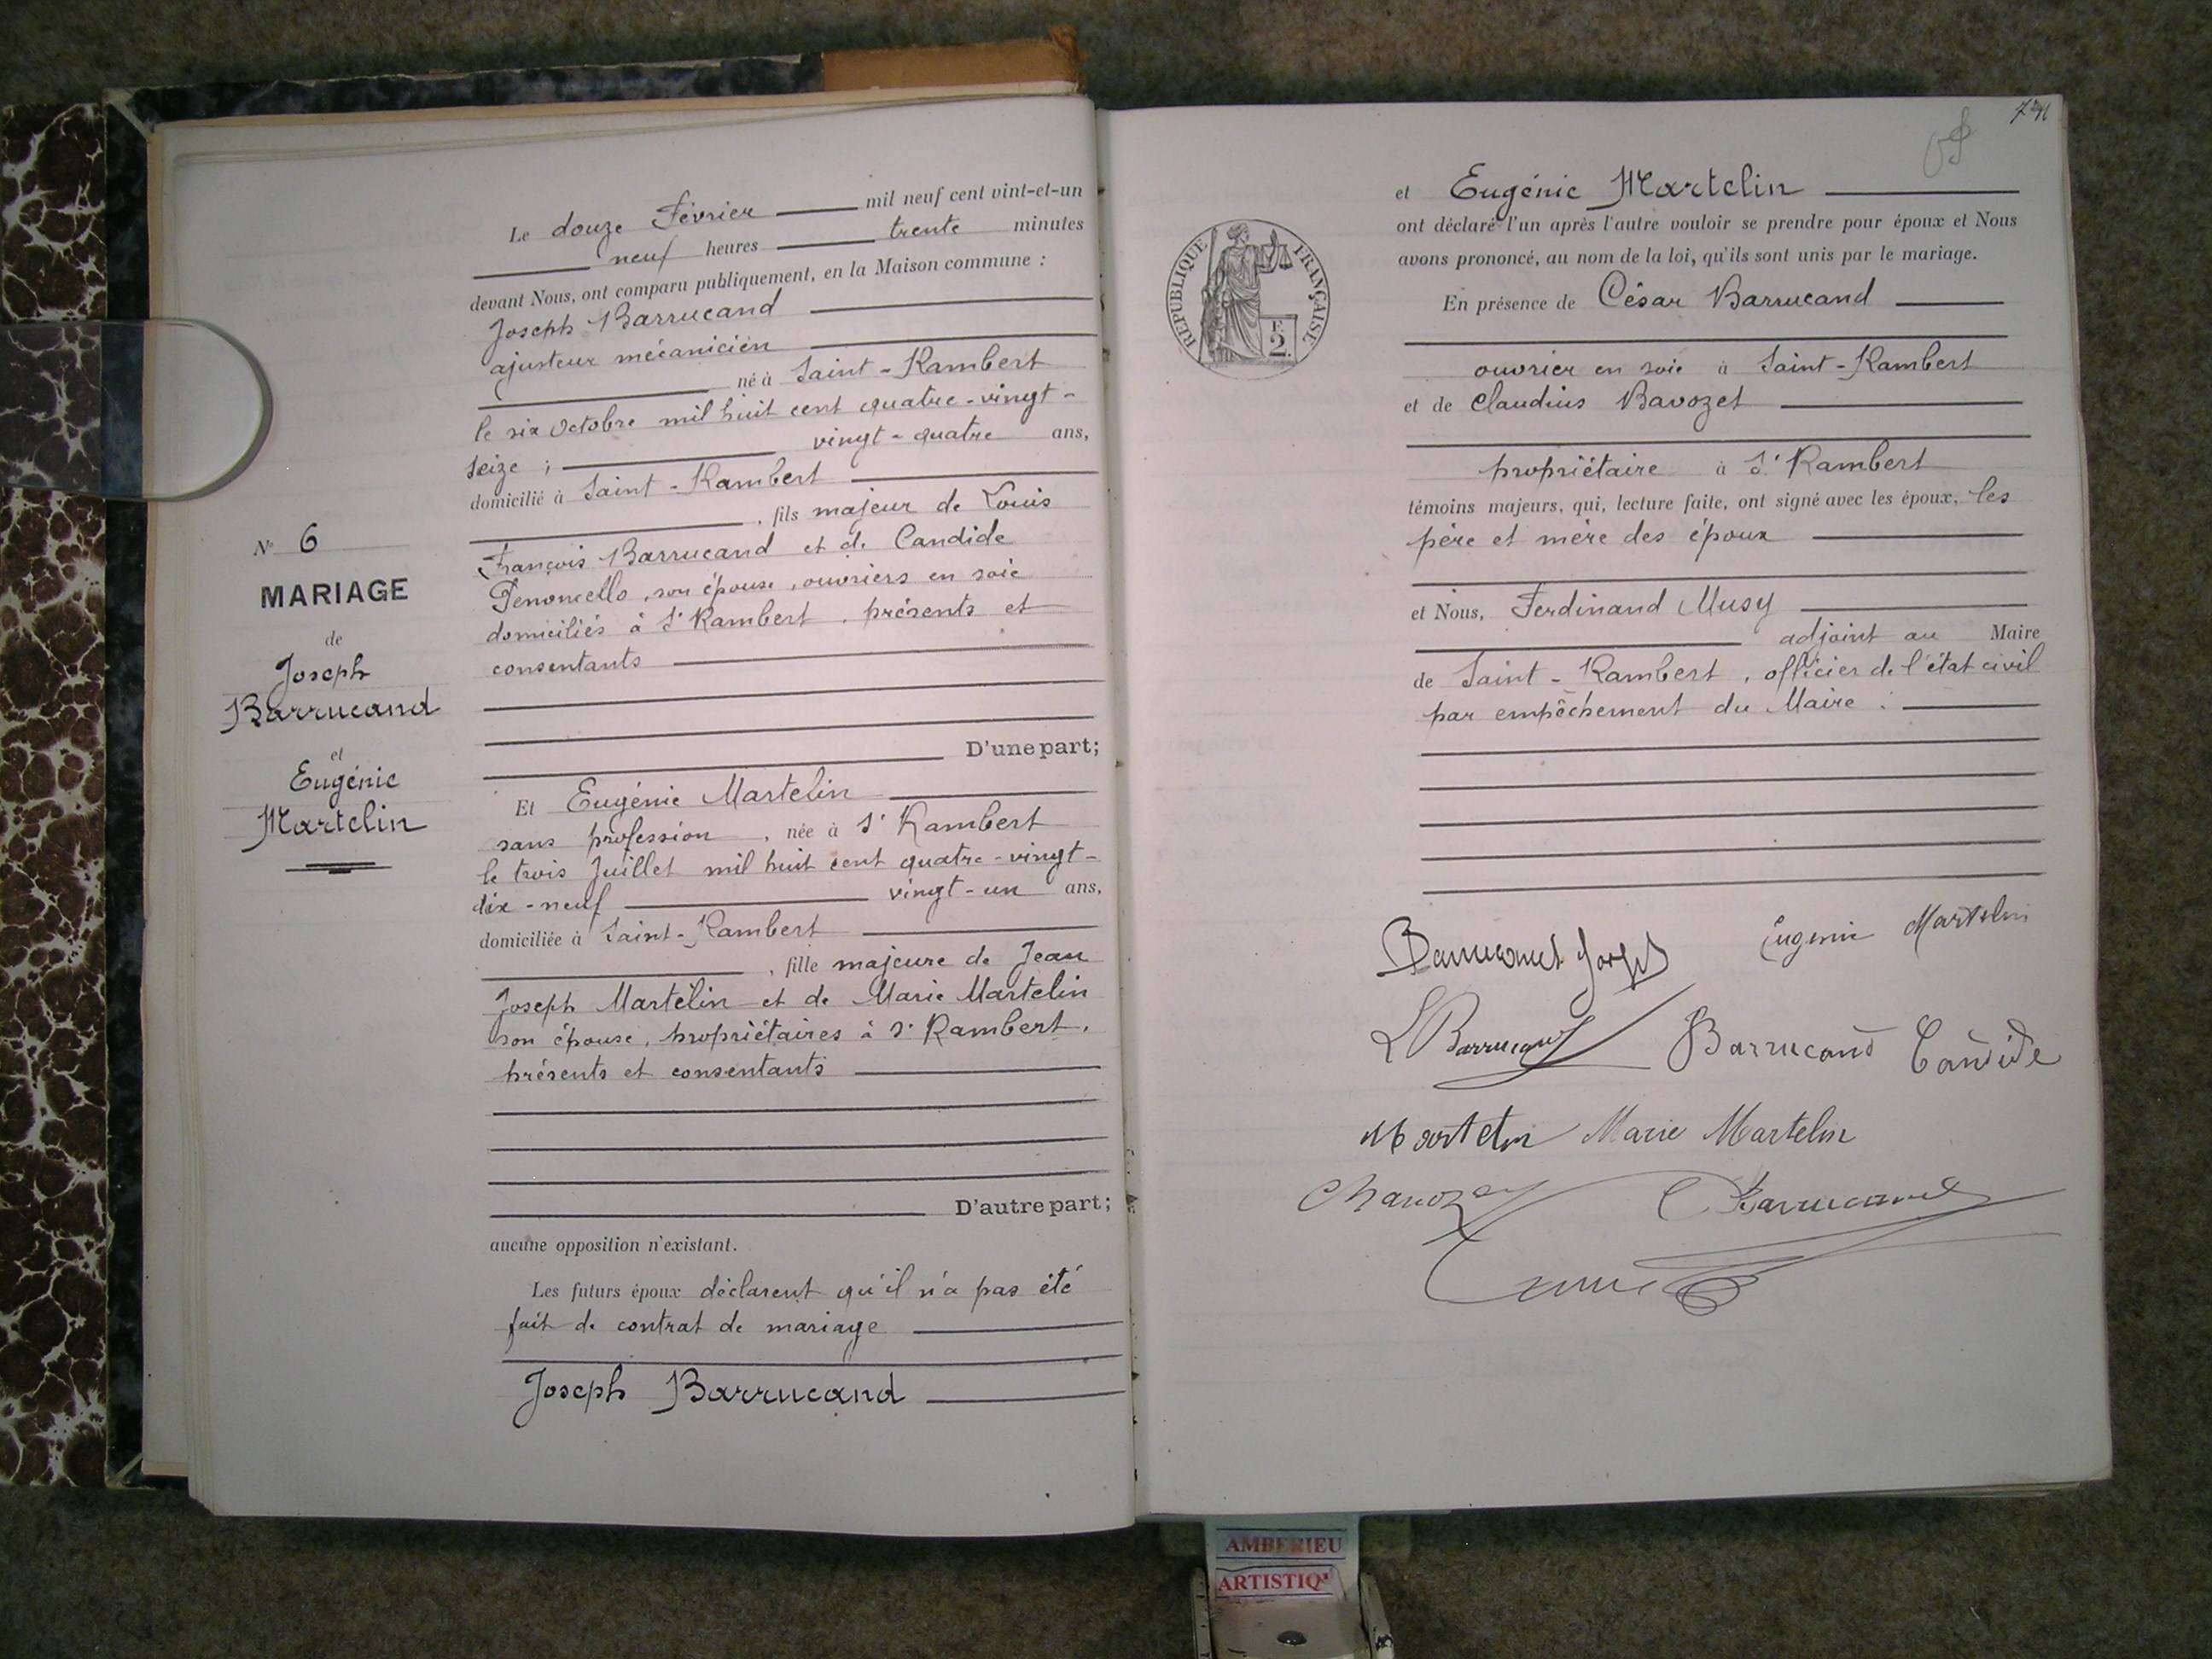 Le douze Février mil neuf cent vint-et-un
neuf heures trente minutes
devant Nous, ont comparu publiquement, en la Maison commune :
Joseph Barrucand
ajusteur mécanicien
né à Saint-Rambert
le six Octobre mil huit cent quatre-vingt-
seize ; vingt-quatre ans,
domicilié à Saint-Rambert
, fils majeur de Louis
François Barrucand et de Candide
Penoncello, son épouse, ouvriers en soie
domiciliés à St Rambert, présents et
consentants
D'une part;
Nº 6
MARIAGE
de
Joseph
Barrucand
et
Eugénie
Martelin
Et Eugénie Martelin
sans profession, née à St Rambert
le trois Juillet mil huit cent quatre-vingt-
dix-neuf vingt-un ans,
domiciliée à Saint-Rambert
, fille majeure de Jean
Joseph Martelin et de Marie Martelin
son épouse, propriétaires à St Rambert,
présents et consentants
D'autre part;
aucune opposition n'existant.
Les futurs époux déclarent qu'il n'a pas été
fait de contrat de mariage
Joseph Barrucand
et Eugénie Martelin
ont déclaré l'un après l'autre vouloir se prendre pour époux et Nous
avons prononcé, au nom de la loi, qu'ils sont unis par le mariage.
RÉPUBLIQUE FRANÇAISE
F.
2.
En présence de César Barrucand
ouvrier en soie à Saint-Rambert
et de Claudius Bavozet
propriétaire à St Rambert
témoins majeurs, qui, lecture faite, ont signé avec les époux, les
père et mère des époux
et Nous, Ferdinand Musy
adjoint au Maire
de Saint-Rambert, officier de l'état civil
par empêchement du Maire.
Barrucand Joseph Eugénie Martelin
L Barrucand Barrucand Candide
Martelin Marie Martelin
C Barrucand
AMBERIEU
ARTISTIQ